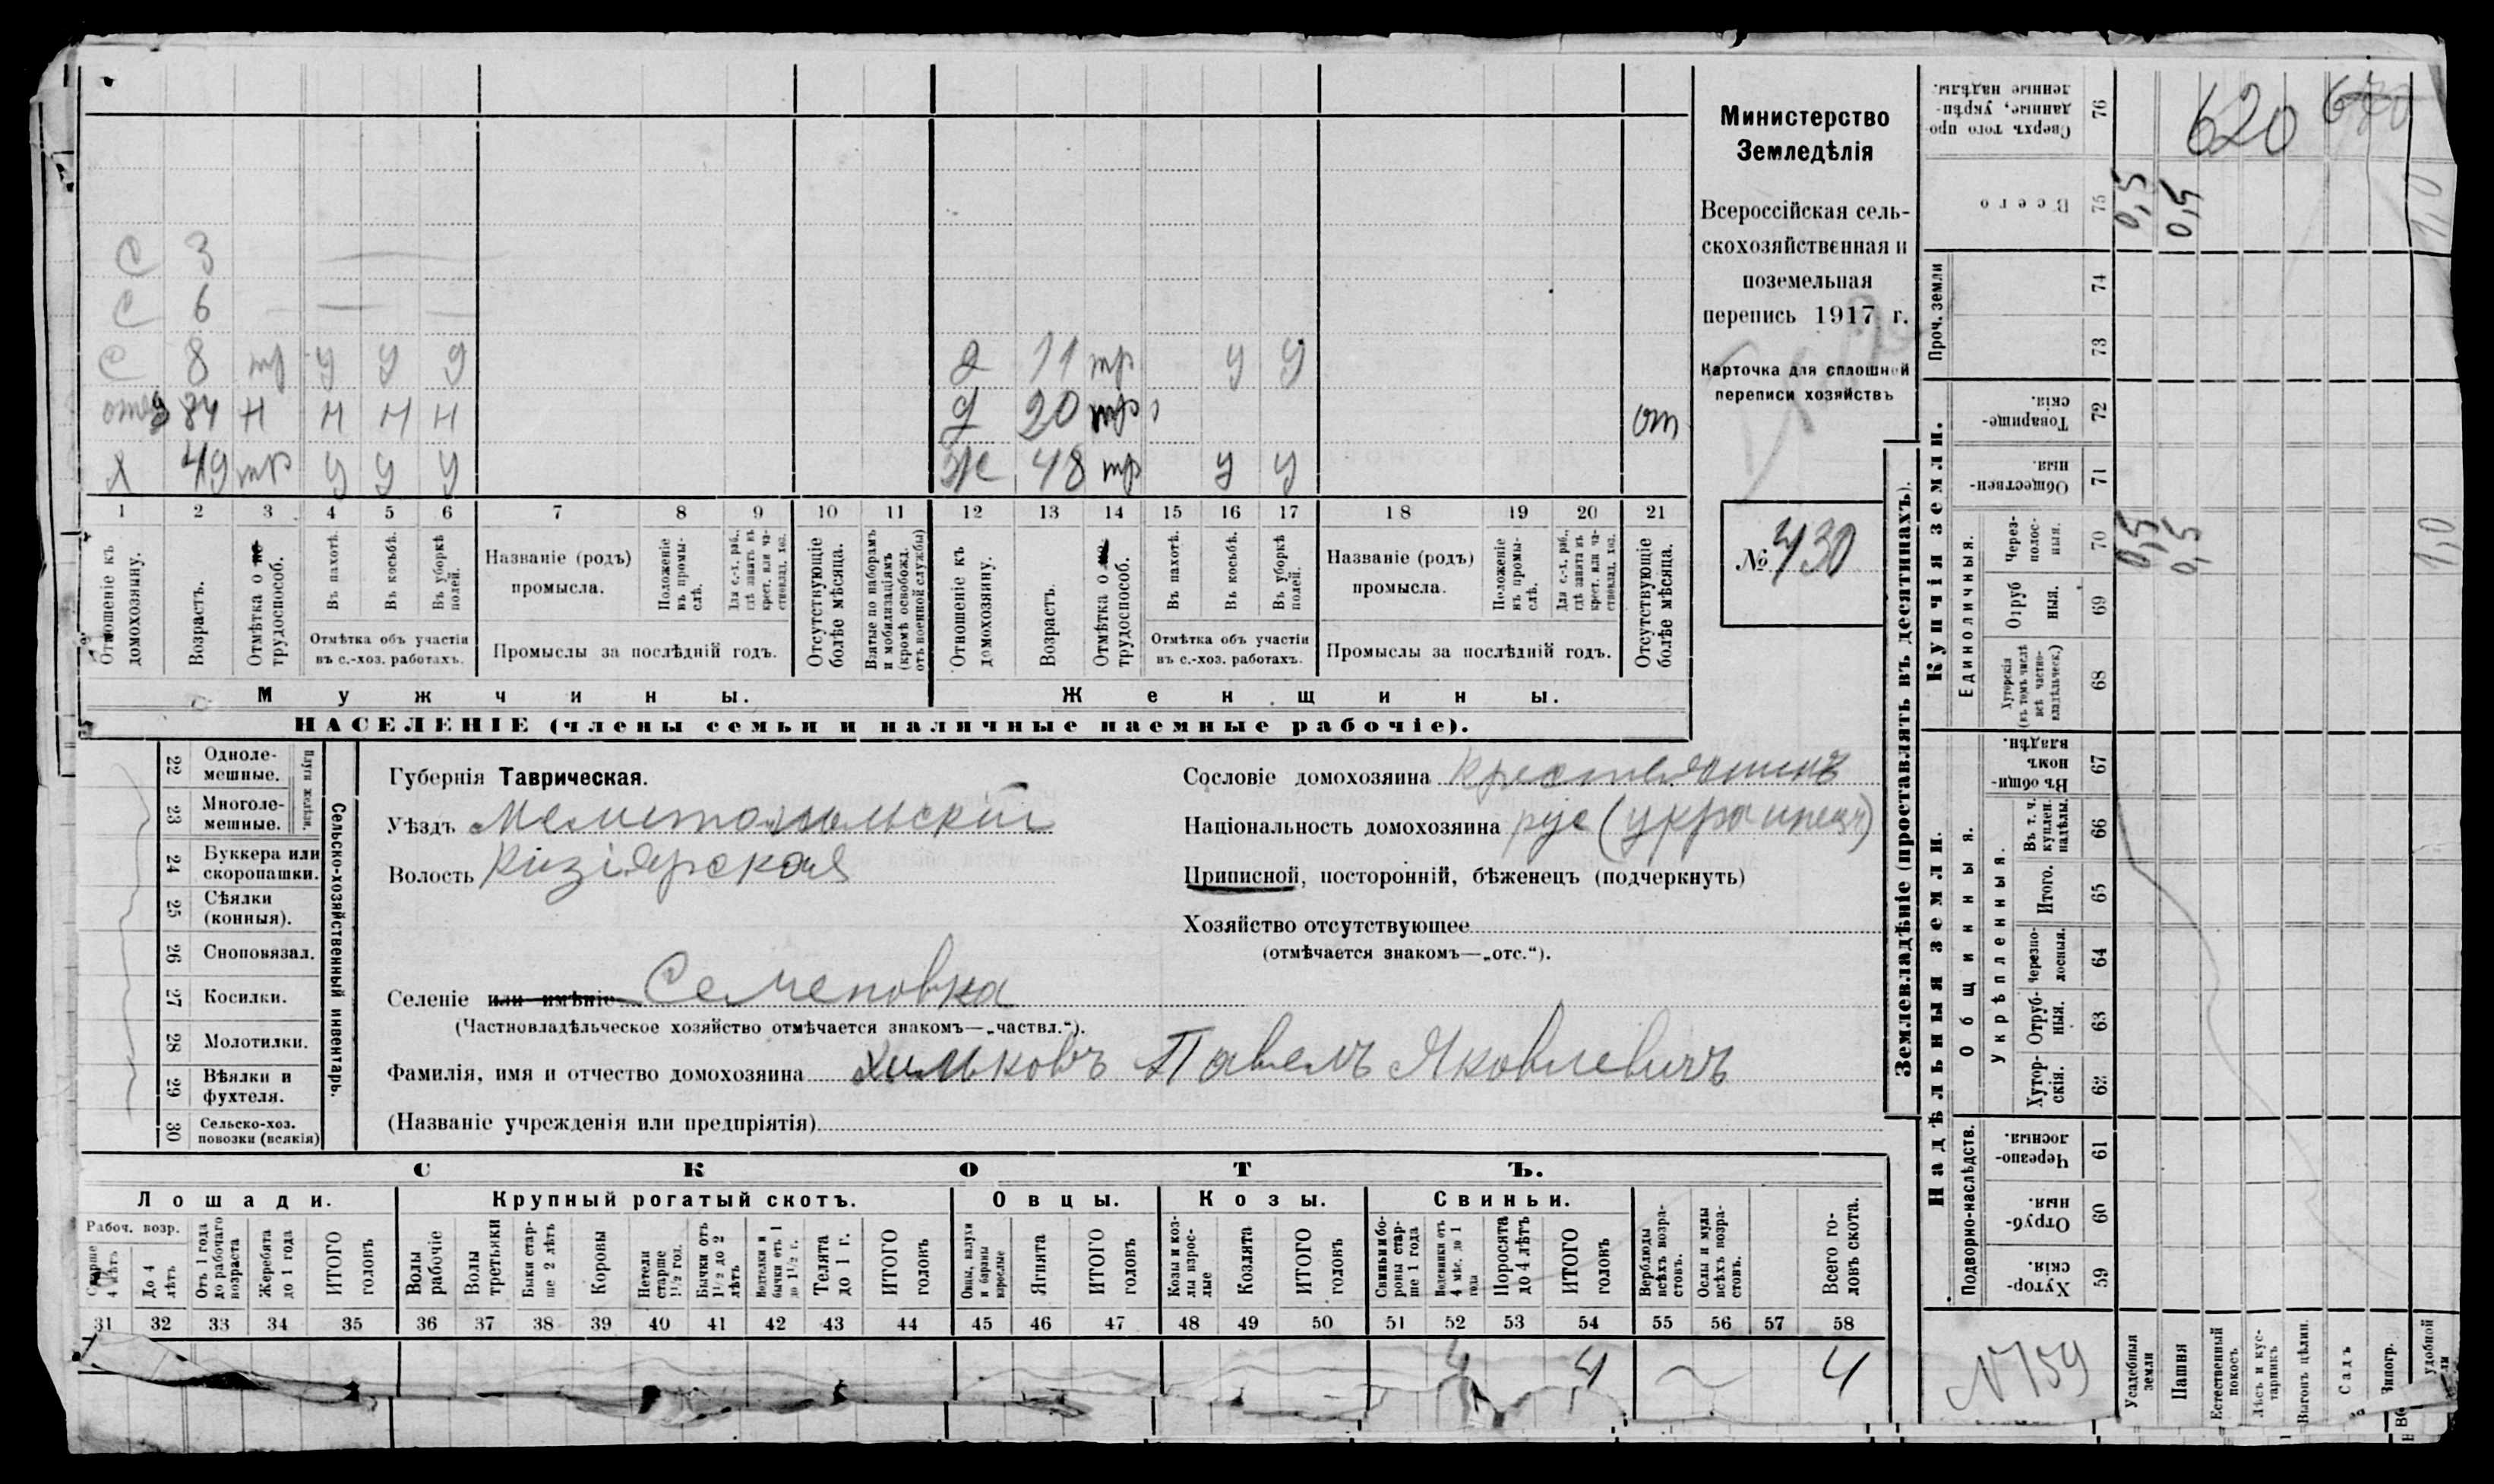 Министерство
Земледѣлія
Всероссійская сель-
скохозяйственная и
поземельная
перепись 1917 г.
Карточка для сплошной
переписи хозяйствъ
№ 430
С 3
С 6
С 8 тр у у у
отец 84 Н Н Н Н
Х 49 тр у у у
д 11 тр у у
д 20 тр от
Ж 48 тр у у
1 2 3 4 5 6 7 8 9 10 11 12 13 14 15 16 17 18 19 20 21
Отношеніе къ домохозяину.
Возрастъ.
Отмѣтка о не трудоспособ.
Въ пахотѣ.
Въ косьбѣ.
Въ уборкѣ полей.
Отмѣтка объ участіи
въ с.-хоз. работахъ.
Названіе (родъ)
промысла.
Положеніе въ промыслѣ.
Для с.-х. раб., гдѣ занятъ въ крест. или частновлад. хоз.
Промыслы за послѣдній годъ.
Отсутствующіе болѣе мѣсяца.
Взятые по наборамъ и мобилизаціямъ (кромѣ освобожд. отъ военной службы)
Отношеніе къ домохозяину.
Возрастъ.
Отмѣтка о не трудоспособ.
Въ пахотѣ.
Въ косьбѣ.
Въ уборкѣ полей.
Отмѣтка объ участіи
въ с.-хоз. работахъ.
Названіе (родъ)
промысла.
Положеніе въ промыслѣ.
Для с.-х. раб., гдѣ занята въ крест. или частновлад. хоз.
Промыслы за послѣдній годъ.
Отсутствующіе болѣе мѣсяца.
Мужчины.
Женщины.
НАСЕЛЕНІЕ (члены семьи и наличные наемные рабочіе).
Сельско-хозяйственный инвентарь.
Плуги желѣзн.
22 Одноле-
мешные.
23 Многоле-
мешные.
24 Буккера или
скоропашки.
25 Сѣялки
(конныя).
26 Сноповязал.
27 Косилки.
28 Молотилки.
29 Вѣялки и
фухтеля.
30 Сельско-хоз.
повозки (всякія)
Губернія Таврическая.
Уѣздъ Мелитопольскій
Волость Кизіярская
Селеніе или имѣніе Семеновка
(Частновладѣльческое хозяйство отмѣчается знакомъ—„частвл.“).
Фамилія, имя и отчество домохозяина Хильковъ Павелъ Яковлевичъ
(Названіе учрежденія или предпріятія)
Сословіе домохозяина крестьянинъ
Національность домохозяина рус (украинецъ)
Приписной, посторонній, бѣженецъ (подчеркнуть)
Хозяйство отсутствующее
(отмѣчается знакомъ—„отс.“).
СКОТЪ.
Лошади.
Крупный рогатый скотъ.
Овцы.
Козы.
Свиньи.
Рабоч. возр.
Старше 4 лѣтъ
До 4 лѣтъ
Отъ 1 года до рабочаго возраста
Жеребята до 1 года
ИТОГО головъ
Волы рабочіе
Волы третьяки
Быки старше 2 лѣтъ
Коровы
Нетели старше 1½ год.
Бычки отъ 1½ до 2 лѣтъ
Телята до 1 г.
ИТОГО головъ
Овцы, валухи и бараны взрослые
Ягнята
ИТОГО головъ
Козы и козлы взрослые
Козлята
ИТОГО головъ
Свиньи и боровы старше 1 года
Подсвинки отъ 4 мѣс. до 1 года
Поросята до 4 лѣтъ
ИТОГО головъ
Верблюды всѣхъ возрастовъ.
Ослы и мулы всѣхъ возрастовъ.
Всего головъ скота.
31 32 33 34 35 36 37 38 39 40 41 42 43 44 45 46 47 48 49 50 51 52 53 54 55 56 57 58
4 4 4
Землевладѣніе (проставлять въ десятинахъ).
Купчія земли.
Надѣльныя земли.
Проч. земли
Единоличныя.
Общинныя.
Укрѣпленныя.
Подворно-наслѣдств.
76 Сверхъ того проданные, укрѣпленные надѣлы.
75 Всего
74
73
72 Товарищескія.
71 Общественныя.
70 Черезполосныя.
69 Отрубныя.
68 Хуторскія (въ томъ числѣ всѣ частновладѣльческ.)
67 Въ общинномъ владѣн.
66 Въ т. ч. куплен. надѣлы.
65 Итого.
64 Черезполосныя.
63 Отрубныя.
62 Хуторскія.
61 Черезполосныя.
60 Отрубныя.
59 Хуторскія.
Усадебныя земли
Пашня
Естественный покосъ.
Лѣсъ и кустарникъ
Выгонъ цѣлин.
Садъ
620
0,5 0,5 1,0
0,5 0,5 1,0
№ 159